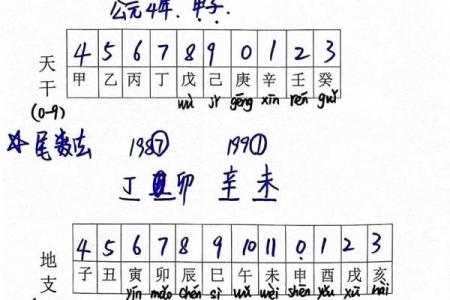 公元4年. 甲子.
天干 4 5 6 7 8 9 0 1 2 3
甲 乙 丙 丁 戊 己 庚 辛 壬 癸
(0~9) wù jǐ gēng xīn rén guǐ
☆尾数法 1987 1991
丁卯 辛未
地支 4 5 6 7 8 9 10 11 0 1 2 3
子 丑 寅 卯 辰 巳 午 未 申 酉 戌 亥
yín mǎo chén sì wǔ wèi shēn yǒu xū hài